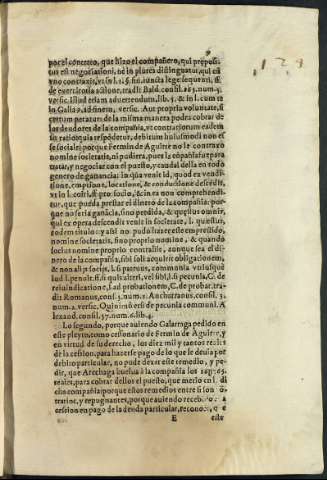 por el concreto, que hizo el compañero, qui prepositus
est negotiationi, ne in plures distinguatur, qui cũ
vno contraxit, vt in l. 1. §. fin. iuncta lege sequenti, ff.
de exercitoria actione, tradit Bald. consil. 265. num. 3.
versic. Illud etiam aduertendum, lib. 5. & in l. cum te
in Galia
certum petatur de la misma manera podra cobrar de
los deudores de la compañia, et contractionum eadem
sit ratio quia respõdetur, debitum huiusmodi non esse
sociale: porque Fermin de Aguirre no le contraxo
nomine societatis, ni pudiera, pues la compañia fue para
tratar, y negociar con el puesto, y caudal della en todo
genero de ganancia: in quã venit id, quod ex venditione,
emptione, locatione, & conductione descendit,
vt in l. coiri, ff. pro socio, & in ea non comprehenditur,
que pueda prestar el dinero de la compañia: porque
no seria ganãcia, sino perdida, & questus omnis,
qui ex opera descendit venit in societate, l. questus,
eodem titulo: y assi no pudo hazer este emprestido,
nomine societatis, sino proprio nomine, & quando
socius nomine proprio contraxit, aunque sea el dinero
de la compañia, sibi soli acquirit obligationem,
& non alijs socijs, l. si patruus, communia vtriusque
iud. l. penult. ff. si quis alteri, vel sibi, l. si pecunia, C. de
rei uindicatione, l. ad probationem, C. de probat. tradit
Romanus, consil. 3. num. 1. Ancharranus, consil. 3.
num. 2. versic. Qui in ius est de pecunia communi. Alexand.
consil. 57. num. 6. lib. 4.
Lo segundo, porque auiendo Galarraga pedido en
este pleyto, como cessionario de Fermin de Aguirre, y
en virtud de su derecho, los diez mil y tantos reales
de la cession, para hazerse pago de lo que le deuia por
debito particular, no pudo dexar este remedio, y pedir,
que Arechaga buelua à la compañia los
reales, para cobrar dellos el puesto, que metio en la
dicha compañia: porque estos remedios entre si son contrarios,
y repugnantes, porque auiendo recebido la
cession en pago de la deuda particular, reconoce, que
E